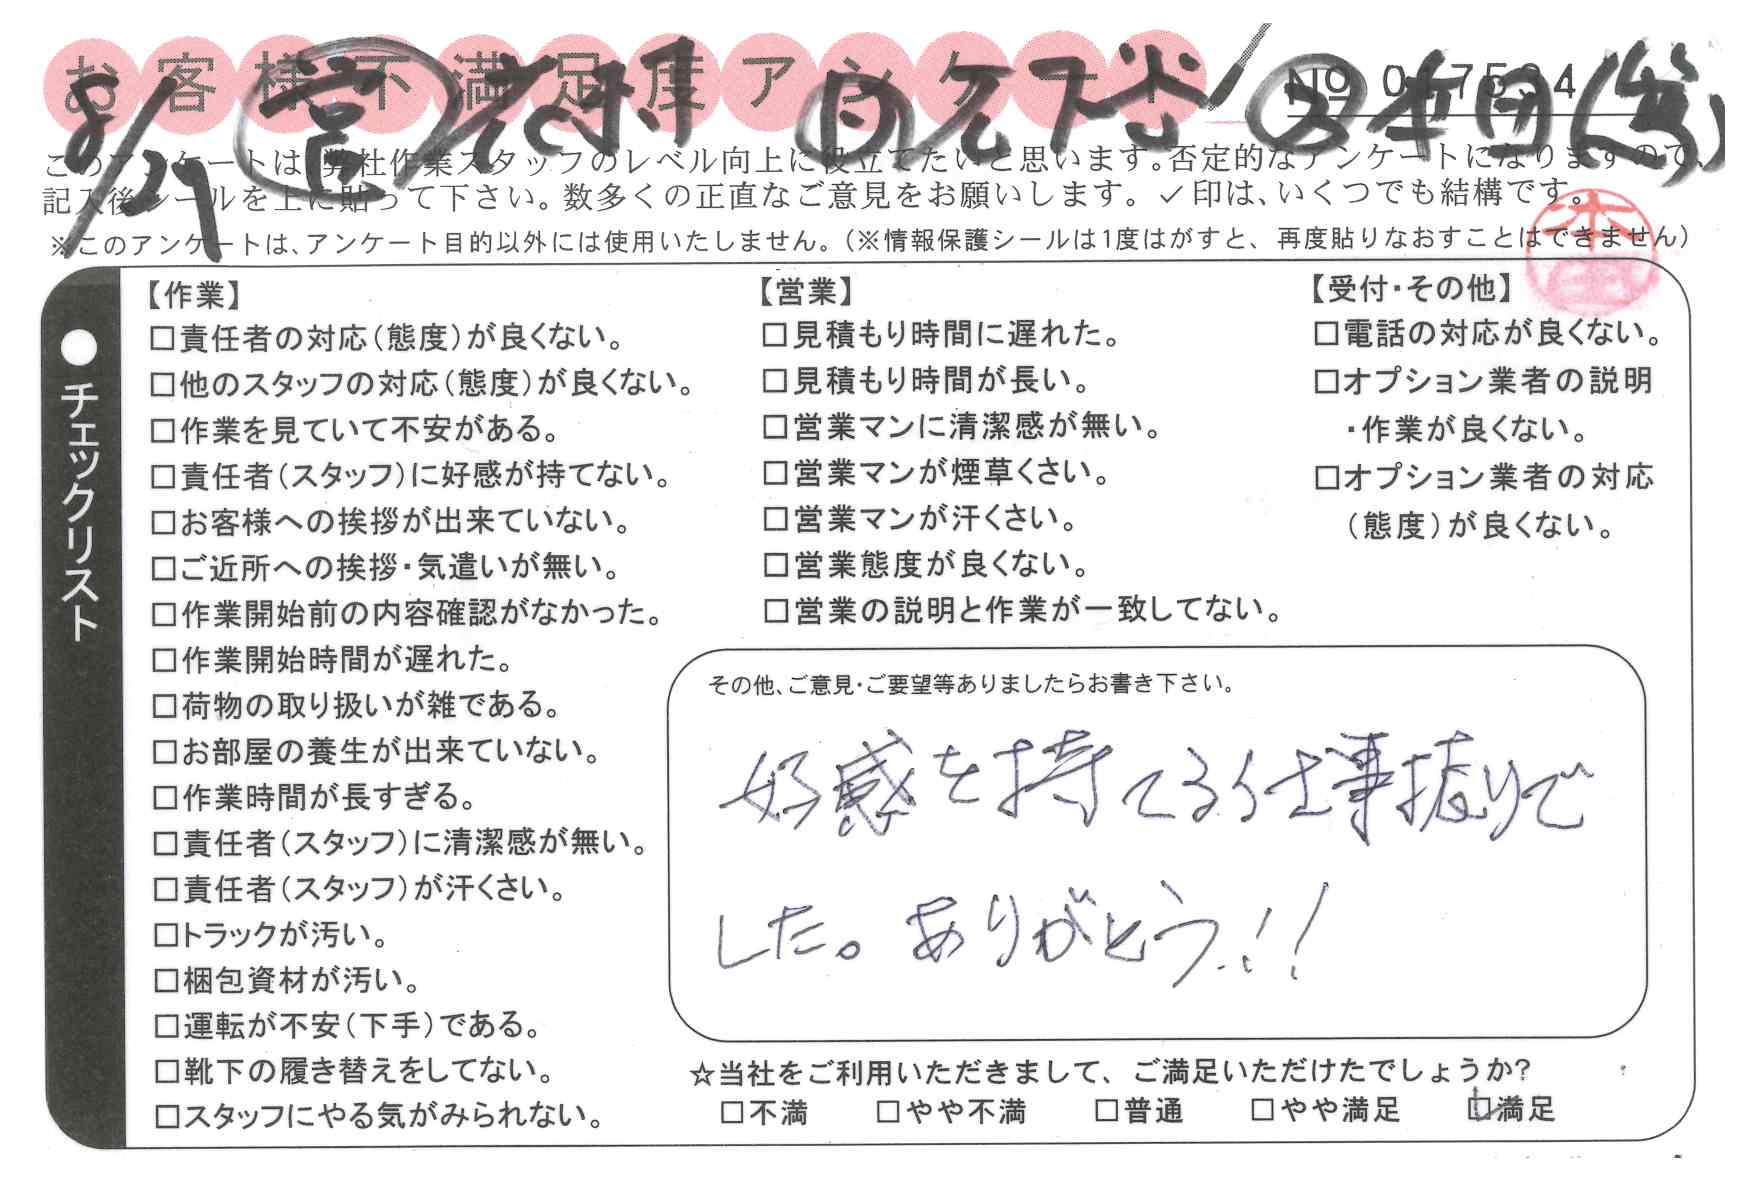 お客様不満足度アンケート
8/29 営 志村 作 岩下
No 017534
このアンケートは、弊社作業スタッフのレベル向上に役立てたいと思います。否定的なアンケートになりますので、
記入後シールを上に貼って下さい。数多くの正直なご意見をお願いします。✓印は、いくつでも結構です。
※このアンケートは、アンケート目的以外には使用いたしません。(※情報保護シールは1度はがすと、再度貼りなおすことはできません)
●チェックリスト
【作業】
□責任者の対応(態度)が良くない。
□他のスタッフの対応(態度)が良くない。
□作業を見ていて不安がある。
□責任者(スタッフ)に好感が持てない。
□お客様への挨拶が出来ていない。
□ご近所への挨拶・気遣いが無い。
□作業開始前の内容確認がなかった。
□作業開始時間が遅れた。
□荷物の取り扱いが雑である。
□お部屋の養生が出来ていない。
□作業時間が長すぎる。
□責任者(スタッフ)に清潔感が無い。
□責任者(スタッフ)が汗くさい。
□トラックが汚い。
□梱包資材が汚い。
□運転が不安(下手)である。
□靴下の履き替えをしてない。
□スタッフにやる気がみられない。
【営業】
□見積もり時間に遅れた。
□見積もり時間が長い。
□営業マンに清潔感が無い。
□営業マンが煙草くさい。
□営業マンが汗くさい。
□営業態度が良くない。
□営業の説明と作業が一致してない。
【受付・その他】
□電話の対応が良くない。
□オプション業者の説明
・作業が良くない。
□オプション業者の対応
(態度)が良くない。
その他、ご意見・ご要望等ありましたらお書き下さい。
好感を持てる仕事振りで
した。ありがとう!!
☆当社をご利用いただきまして、ご満足いただけたでしょうか?
□不満 □やや不満 □普通 □やや満足 ☑満足